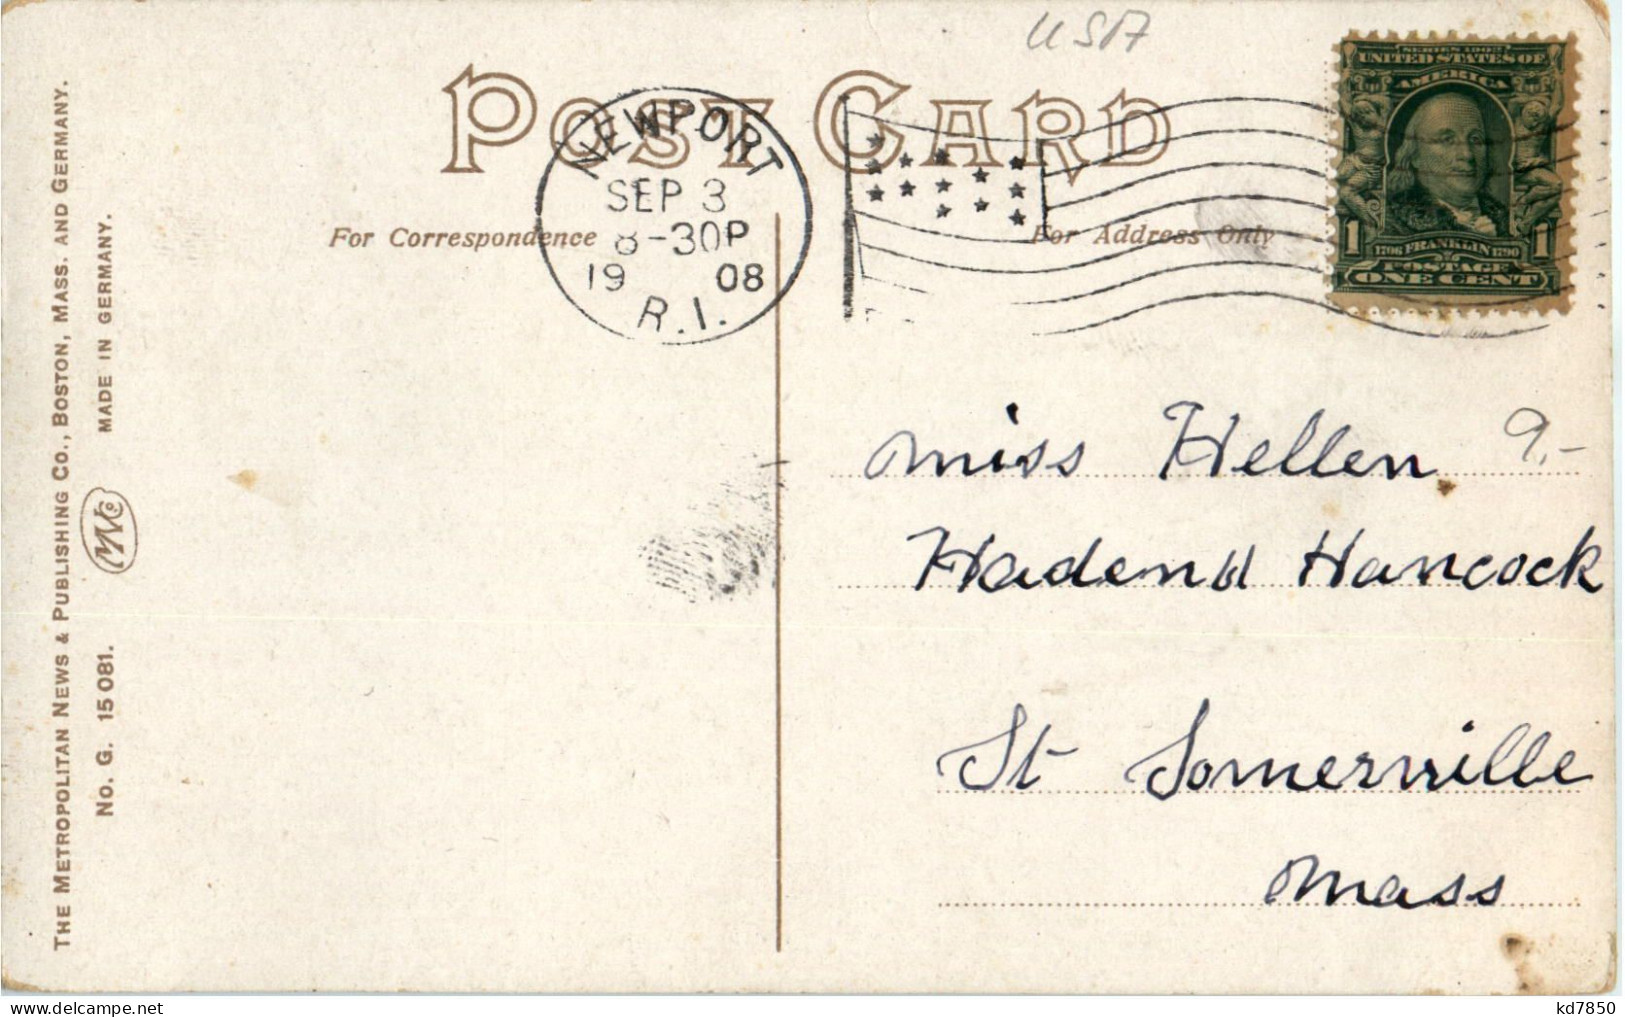 USA
POST CARD
NEWPORT
SEP 3
8-30P
19 08
R.I.
For Correspondence
For Address Only
SERIES 1902
UNITED STATES OF
AMERICA
1 1
1706 FRANKLIN 1790
POSTAGE
ONE CENT
THE METROPOLITAN NEWS & PUBLISHING CO., BOSTON, MASS. AND GERMANY.
No. G. 15081. MADE IN GERMANY.
miss Hellen 9,-
Hancock
St Somerville
Mass
www.delcampe.net
kd7850